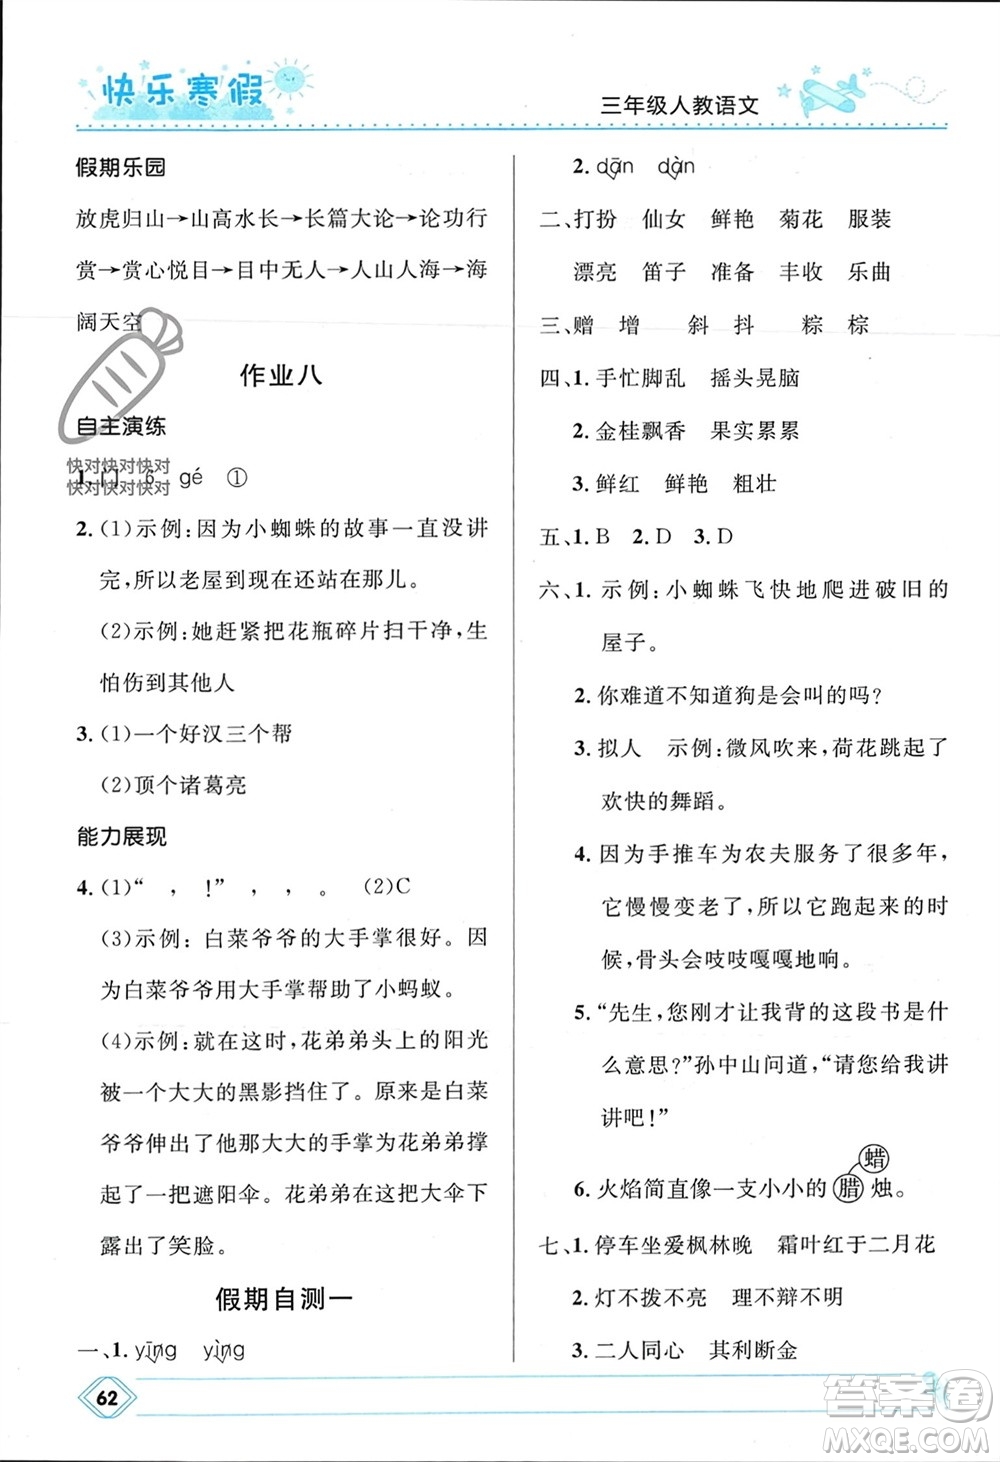 快乐寒假
三年级人教语文
假期乐园
放虎归山→山高水长→长篇大论→论功行
赏→赏心悦目→目中无人→人山人海→海
阔天空
作业八
自主演练
快对快对快对
快对快对快对
1. 门 6 gé ①
2. (1)示例:因为小蜘蛛的故事一直没讲
完,所以老屋到现在还站在那儿。
(2)示例:她赶紧把花瓶碎片扫干净,生
怕伤到其他人
3. (1)一个好汉三个帮
(2)顶个诸葛亮
能力展现
4. (1)“ , !” , , 。 (2)C
(3)示例:白菜爷爷的大手掌很好。因
为白菜爷爷用大手掌帮助了小蚂蚁。
(4)示例:就在这时,花弟弟头上的阳光
被一个大大的黑影挡住了。原来是白菜
爷爷伸出了他那大大的手掌为花弟弟撑
起了一把遮阳伞。花弟弟在这把大伞下
露出了笑脸。
假期自测一
一、1. yīng yìng
62
2. dān dàn
二、打扮 仙女 鲜艳 菊花 服装
漂亮 笛子 准备 丰收 乐曲
三、赠 增 斜 抖 粽 棕
四、1. 手忙脚乱 摇头晃脑
2. 金桂飘香 果实累累
3. 鲜红 鲜艳 粗壮
五、1. B 2. D 3. D
六、1. 示例:小蜘蛛飞快地爬进破旧的
屋子。
2. 你难道不知道狗是会叫的吗?
3. 拟人 示例:微风吹来,荷花跳起了
欢快的舞蹈。
4. 因为手推车为农夫服务了很多年,
它慢慢变老了,所以它跑起来的时
候,骨头会吱吱嘎嘎地响。
5. “先生,您刚才让我背的这段书是什
么意思?孙中山问道,“请您给我讲
讲吧!”
蜡
6. 火焰简直像一支小小的腊烛。
七、1. 停车坐爱枫林晚 霜叶红于二月花
2. 灯不拨不亮 理不辩不明
3. 二人同心 其利断金
答案圈
MXQE.COM